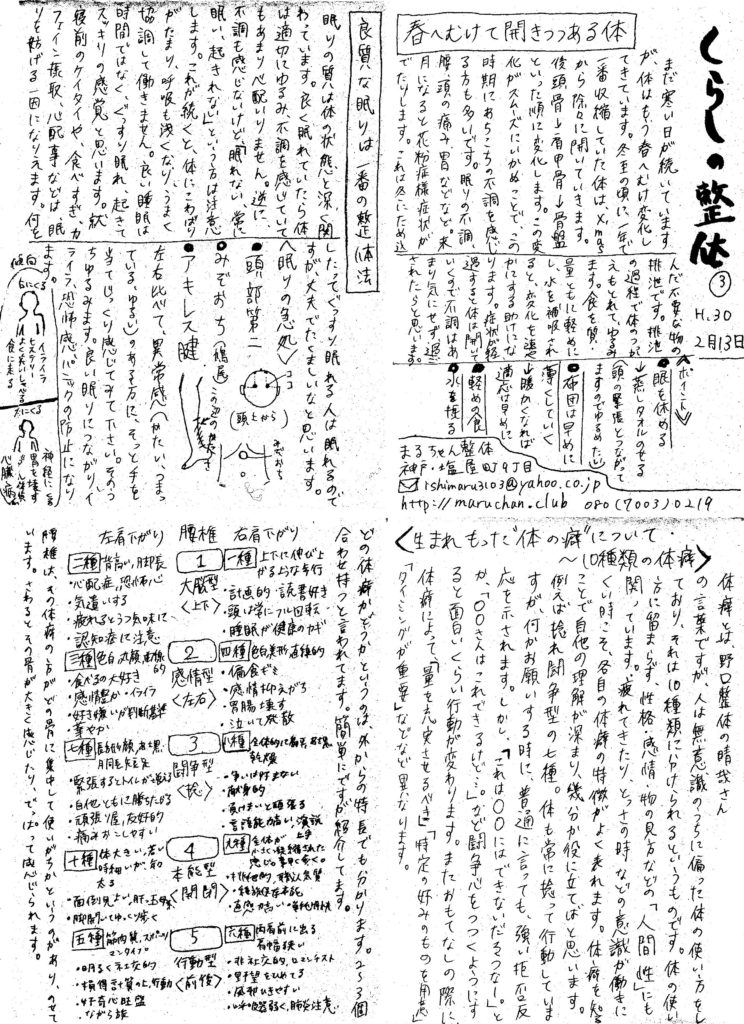 くらしの整体 ③
H.30
2月13日
春へむけて開きつつある体
まだ寒い日が続いています
が、体はもう春へむけ変化し
てきています。冬至の頃に一年で
一番収縮していた体は、Xmas
から除々に開いていきます。
後頭骨→肩甲骨→骨盤
といった順に変化します。この変
化がスムーズにいかぬことで、この
時期にあちこちの不調を感じ
る方も多いです。眠りの不調、
腰、頭の痛み、胃などなど。来
月になると花粉症様症状が
でたりします。これは冬にため込
んだ不要な物の
排泄です。排泄
の過程で体のつか
えもとれて、ゆるみ
ます。食を質、
量ともに軽めに
し、水を補吸され
ると、変化を速や
かにする助けにな
ります。症状が経
過すると体は開いて
いくので不調はあ
まり気にせず過ご
されたらと思います。
〈ポイント〉
●眼を休める
→蒸しタオルのせる
(頭の緊張とつながって
ますのでゆるめたい)
●布団は早めに
薄くしていく
→暖かくなれば
適応は早めに
●軽めの食
●水を摂る
まるちゃん整体
神戸・塩屋町9丁目
✉ishimaru3103@yahoo.co.jp
http://maruchan.club 080(7003)0219
良質な眠りは一番の整体法
眠りの質は体の状態と深く関
わっています。良く眠れていたら体
は適切にゆるみ、不調を感じていて
もあまり心配いりません。逆に、
不調も感じないけど「眠れない、常に
眠い、起きれない」という方は注意
します。これが続くと、体にこわばり
がたまり、呼吸も浅くなり、うまく
協調して働きません。良い睡眠は
時間ではなく、ぐっすり眠れ、起きて
スッキリの感覚と思います。就
寝前のケイタイや、食べすぎ、カ
フェイン採取、心配事などは、眠
りを妨げる一因になりえます。何を
したってぐっすり眠れる人は眠れるので
すが、丈夫でたくましいなと思います。
〈眠りの急処〉
●頭部第二
ココ
(頭上から)
●みぞおち(鳩尾)
みぞおち
この辺のかたさ
●アキレス腱
左右比べて、異常感(かたい、つまっ
ている、ゆるい)のある方に、そっと手を
当てじっくり感じてみて下さい。そのう
ちゆるみます。良い眠りにつながり、イ
ライラ、恐怖感、パニックの防止になり
ます。
傾向
右にくる
イライラ
ヒステリー
よくしゃべる
食に走る
左にくる
神経にくる
胃を壊す
心臓病
〈生まれもった"体の癖"について
～10種類の体癖〉
体癖とは野口整体の晴哉さん
の言葉ですが、人は無意識のうちに偏った体の使い方をし
ており、それは10種類に分けられるというものです。体の使い
方に留まらず、性格・感情・物の見方などの「人間性」にも
関っています。疲れてきたり、とっさの時などの意識が働きに
くい時こそ、各自の体癖の特徴がよく表れます。体癖を知る
ことで自他の理解が深まり、幾分か役に立てばと思います。
例えば捻れ闘争型の七種。体も常に捻って行動していま
すが、何かお願いする時に、普通に言っても、強い拒否反
応を示されます。しかし、「これは〇〇にはできないだろうな」と
か、「〇〇さんはこれできるけど…」などで闘争心をつつくようにす
ると面白いくらい行動が変わります。またおもてなしの際に、
体癖によって、「量を充実させるべき」「特定の好みのものを用意」
「タイミングが重要」などなど異なります。
どの体癖かどうかというのは、外からの特長でも分かります。2〜3個
合わせ持つと言われてます。簡単にですが紹介してます。
右肩下がり
腰椎
左肩下がり
1
大脳型
〈上下〉
2
感情型
〈左右〉
3
闘争型
〈捻〉
4
本能型
〈開閉〉
5
行動型
〈前後〉
一種 上下に伸び上
がるような歩行
・計画的・読書好き
・頭は常にフル回転
・睡眠が健康のカギ
四種 色白美形 直線的
・偏食ぎみ
・感情抑えがち
・胃腸壊す
・泣いて放散
八種
・争いは好まない
・献身的
・負けまいと頑張る
・言語能力高い、演説
九種
・排他的、職人気質
・種族保存本能
・直感力高い
六種 肉肩前に出る
・非社交的、ロマンチスト
・野望をひめてる
・風邪ひきやすい
・呼吸器弱く、肺炎注意
二種 背高い、脚長
・心配症、恐怖心
・気遣いする
・疲れるとうつ気味に
・認知症に注意
三種 色白、丸顔、曲線的
・食べるの大好き
・感情豊か、イライラ
・好き嫌いが判断基準
・華やか
七種
・緊張するとトイレが近い
・自他ともに勝ちたがる
・頑張り屋、友好的
・痛みおこしやすい
十種 体大きい、若い
時細いが、知
太る
・面倒見よい、肝っ玉母
・脚開いてゆっくり歩く
五種 筋肉質、スポーツ
マンタイプ
・明るく社交的
・損得計算の上、行動
・好奇心旺盛
・ながら族
腰椎は、その体癖の方がどの骨に集中して使いがちかというのがあり、のせて
います。さわるとその骨が大きく感じたり、でっぱって感じられます。